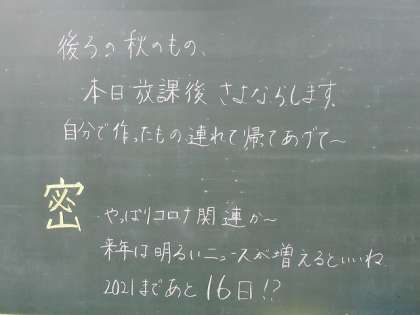 後ろの秋のもの、
本日放課後さよならします。
自分で作ったもの連れて帰ってあげて～
密
やっぱりコロナ関連か～
来年は明るいニュースが増えるといいね
2021まであと16日!?